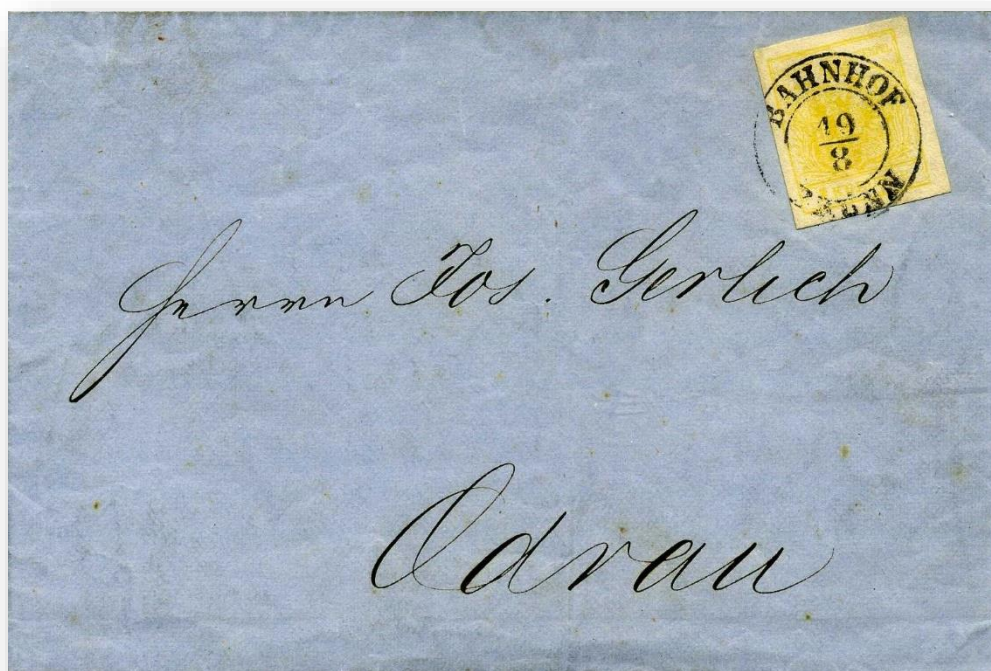 BAHNHOF
19
8
Herrn Jos. Gerlich
Odrau